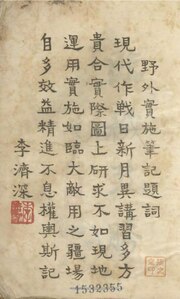 野外實施筆記題詞
現代作戰日新月異講習多方
貴合實際圖上研求不如現地
運用實施如臨大敵用之疆場
自多效益精進不息權輿斯記
李濟深
1532355